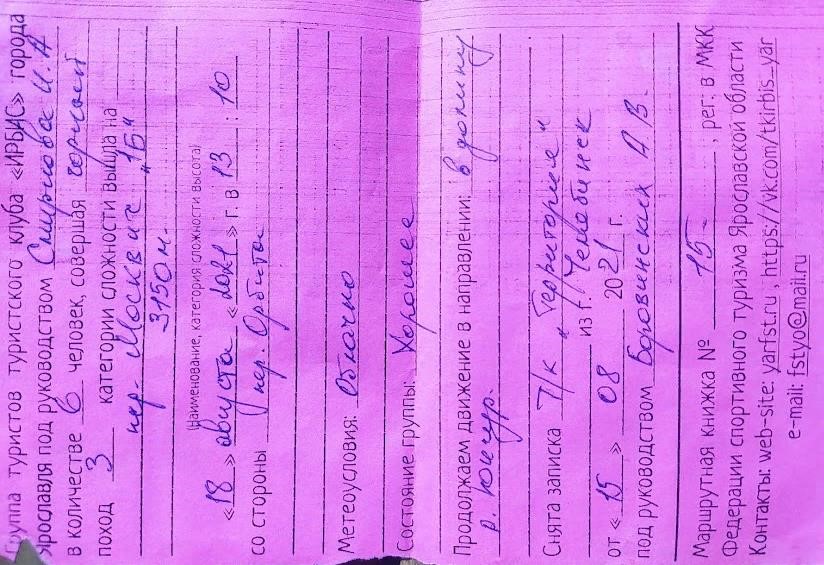 Группа туристов туристского клуба «ИРБИС» города
Ярославля под руководством Смирнова И. А
в количестве 6 человек, совершая горный
поход 3 категории сложности вышла на
пер. Москвич "1Б"
3150 м.
(Наименование, категория сложности, высота)
«18» августа «2021» г. в 13 : 10
со стороны пер. Орбита
Метеоусловия: Облачно
Состояние группы: Хорошее
Продолжаем движение в направлении: в долину
р. Юнкур.
Снята записка Т/к "Территория"
из г. Челябинск
от «15» 08 2021 г.
под руководством Боровинских А В.
Маршрутная книжка № 15- , рег: в МКК
Федерации спортивного туризма Ярославской области
Контакты: web-site: yarfst.ru , https://vk.com/tkirbis_yar
e-mail: fstyo@mail.ru